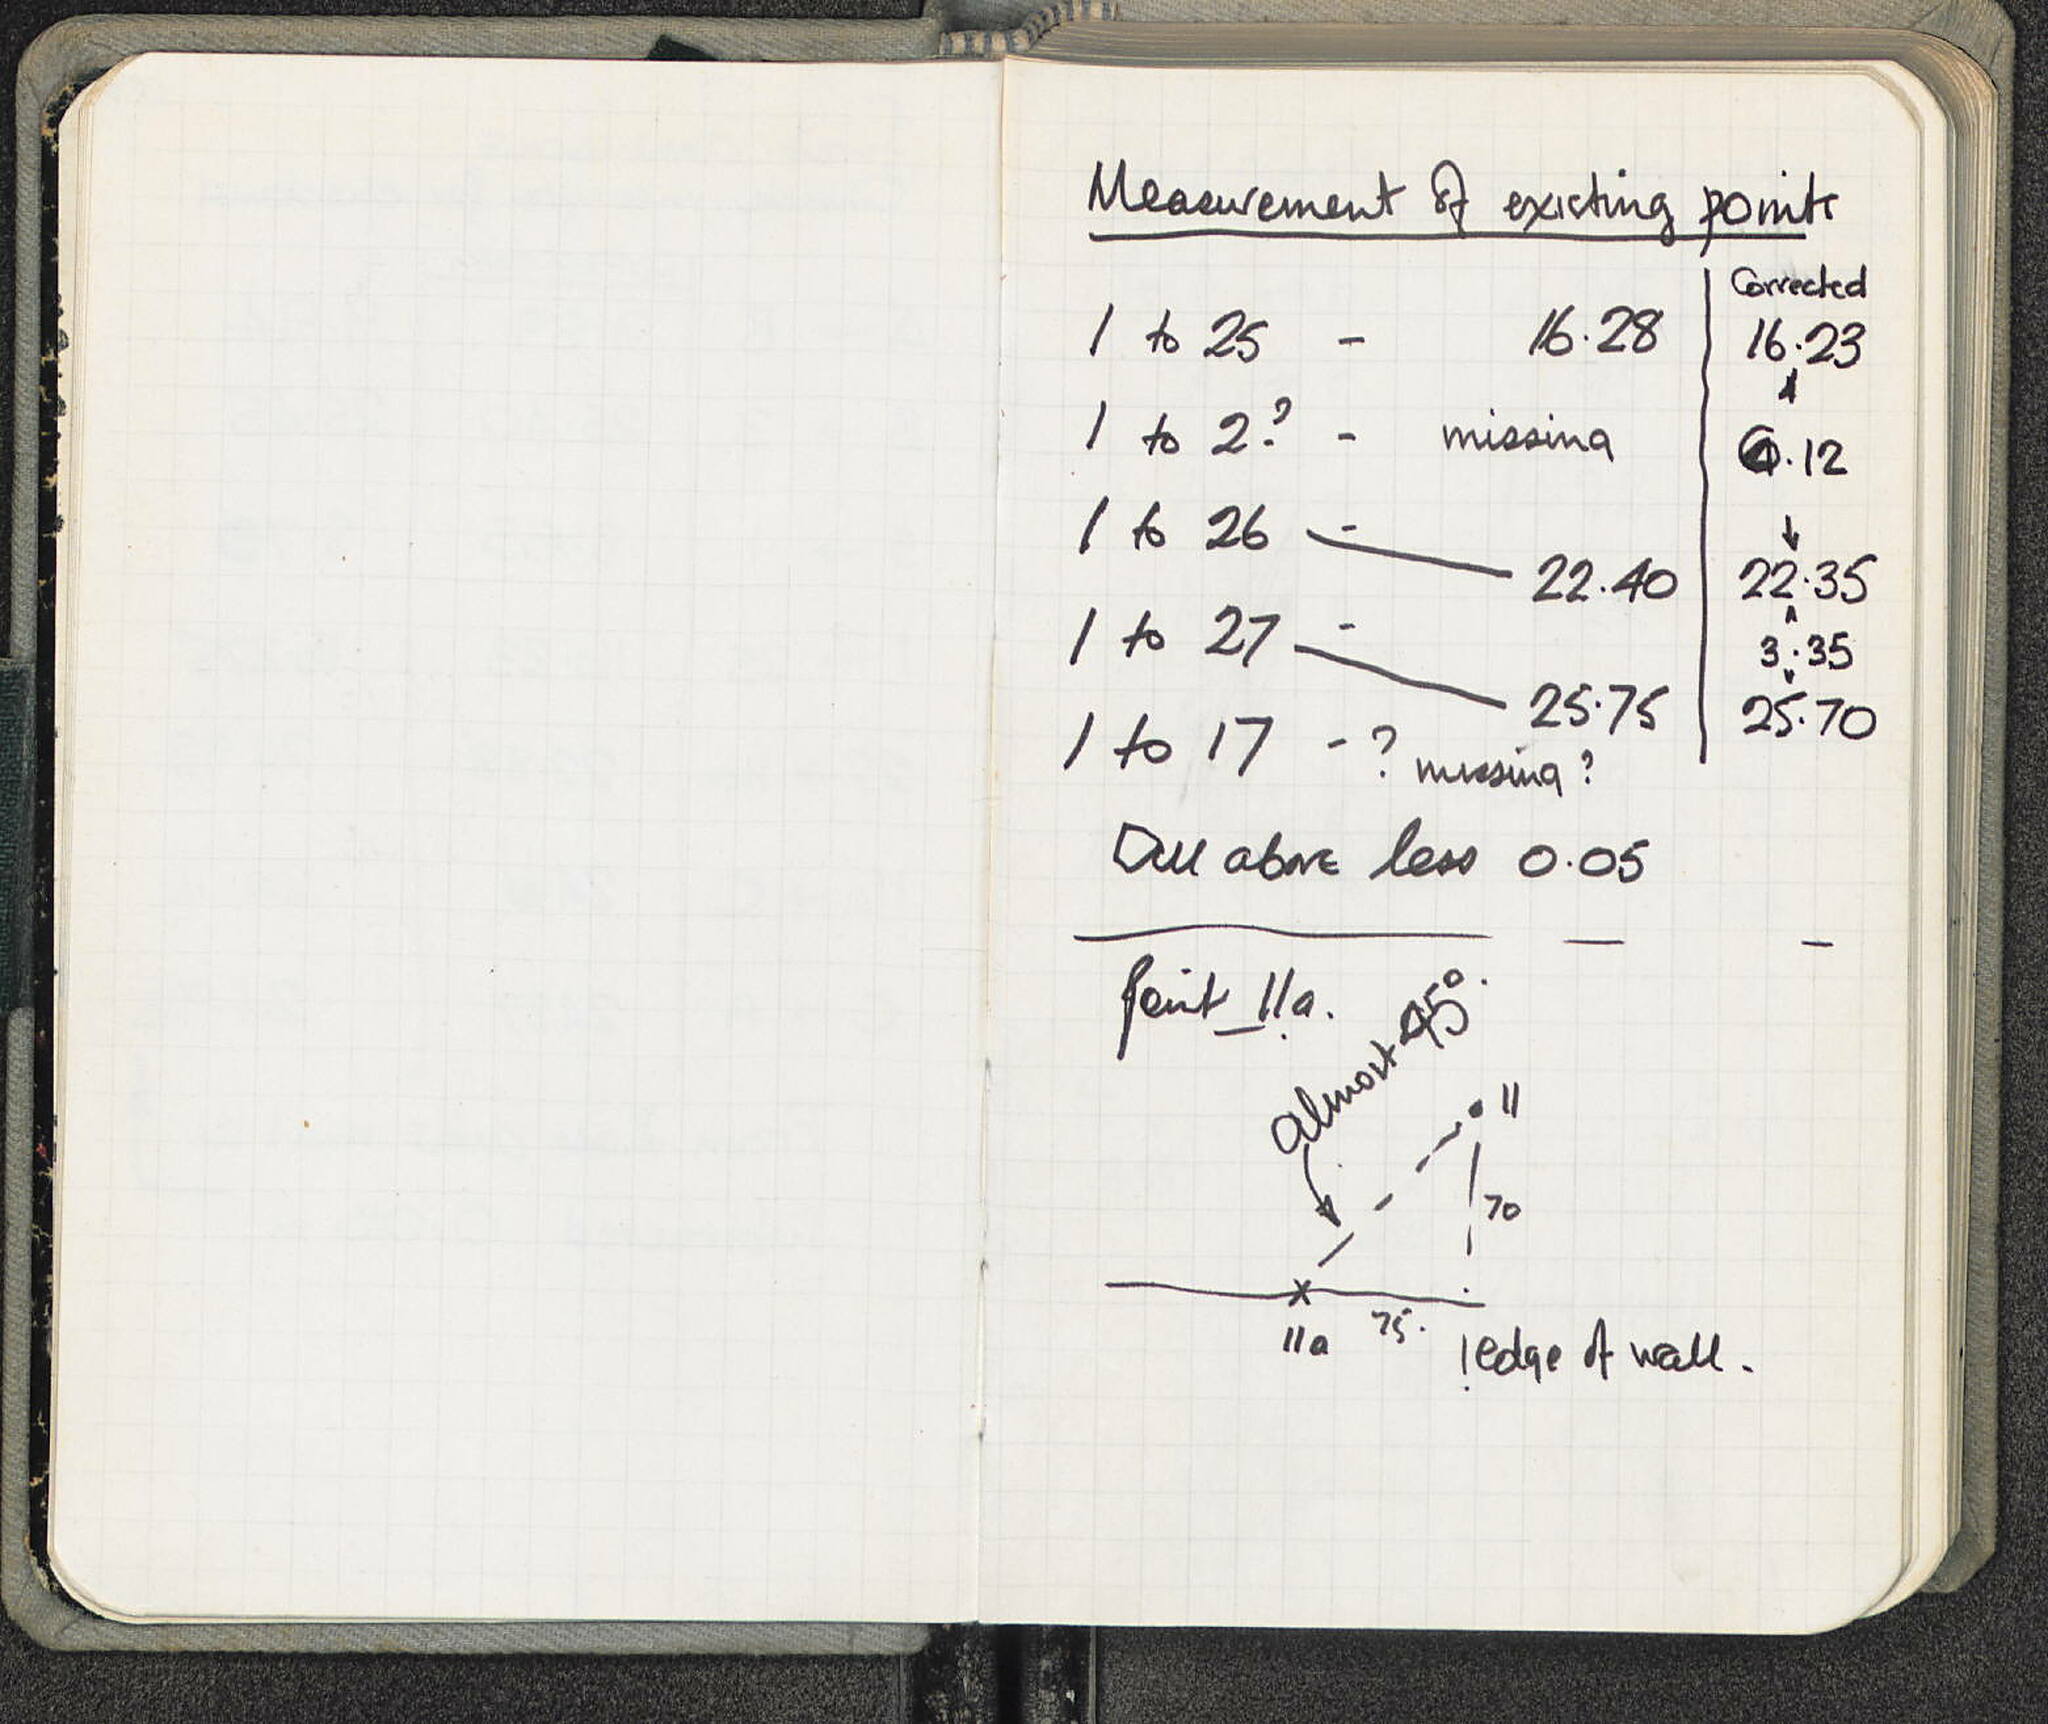 Measurement of existing points
Corrected
1 to 25 - 16.28 16.23
1 to 2? - missing 6.12
1 to 26 - 22.40 22.35
3.35
1 to 27 - 25.75 25.70
1 to 17 - ? missing?
All above less 0.05
Point 11a.
almost 45°.
11
70
11a 75.
edge of wall.